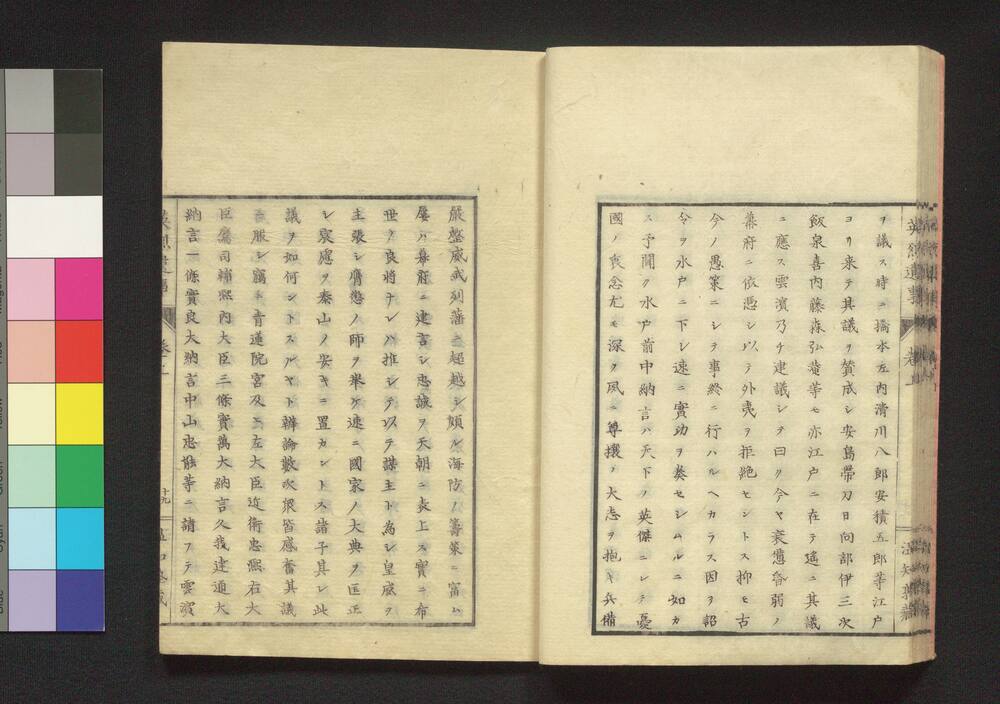 ヲ議ス時ニ橋本左内清川八郎安積五郎等江戸
ヨリ来テ其議ヲ賛成シ安島帯刀日向部伊三次
飯泉喜内藤森弘菴等モ亦江戸ニ在テ遙ニ其議
ニ應ス雲濱乃チ建議シテ曰ク今ヤ衰憊昏弱ノ
幕府ニ依憑シ以テ外夷ヲ拒絶セントス抑モ古
今ノ愚策ニシテ事終ニ行ハルヘカラス因ヲ詔
令ヲ水戸ニ下シ速ニ實功ヲ奏セシムルニ如カ
ス予聞ク水戸前中納言ハ天下ノ英傑ニシテ憂
國ノ衷念尤モ深ク夙ニ尊攘ノ大志ヲ抱キ兵備
嚴整威武列藩ニ超越シ頗ル海防ノ籌策ニ富ム
屡ハ幕府ニ建言シ忠誠ヲ天朝ニ表上ス實ニ希
世ノ良將ナレハ推シテ以テ謀主ト為シ皇威ヲ
主張シ膺懲ノ師ヲ舉ケ速ニ國家ノ大典ヲ匡正
シ宸慮ヲ泰山ノ安キニ置カントス諸子其レ此
議ヲ如何ントスルヤト辯論數次衆皆感奮其議
ニ服シ竊ニ青蓮院宮及ヒ左大臣近衛忠熙右大
臣鷹司輔熙内大臣三條實萬大納言久我建通大
納言一條實良大納言中山忠能等ニ請フテ雲濱